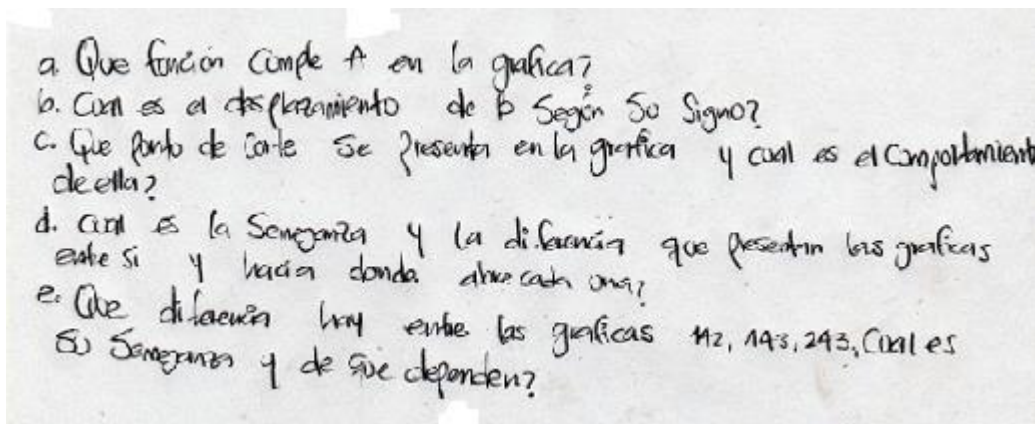 a. Que función cumple A en la grafica?
b. Cual es el desplazamiento de b Según Su Signo?
c. Que Punto de Corte Se Presenta en la grafica y cual es el Comportamiento
de ella?
d. cual es la Semejanza y la diferencia que presentan las graficas
entre si y hacia donde abre cada una?
e. Que diferencia hay entre las graficas 1y2, 1y3, 2y3, Cual es
Su Semejanza y de que dependen?